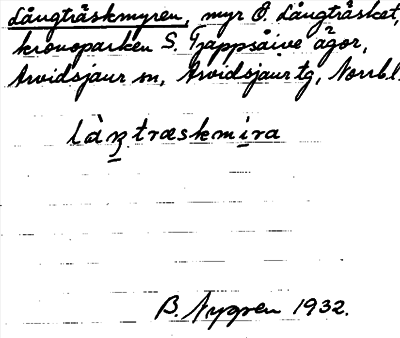 Långträskmyren, myr Ö. Långträsket,
kronoparken S. Tjappsåive ägor,
Arvidsjaur sn, Arvidsjaur tg, Norrb. l.
làŋtræskmira
B. Nygren 1932.